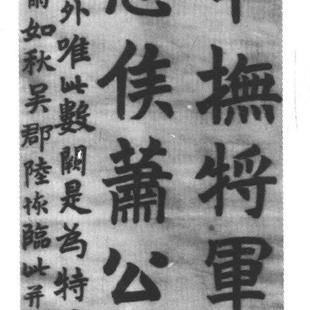 撫將軍
侯蕭公
外唯此數闕是為特
如秋吴郡陸恢臨此并